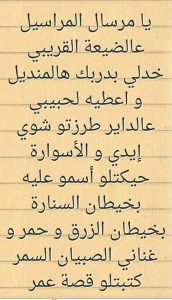 يا مرسال المراسيل
عالضيعة القريبي
خدلي بدربك هالمنديل
و اعطيه لحبيبي
عالداير طرزتو شوي
إيدي و الأسوارة
حيكتلو أسمو عليه
بخيطان السنارة
بخيطان الزرق و حمر و
غناني الصبيان السمر
كتبتلو قصة عمر